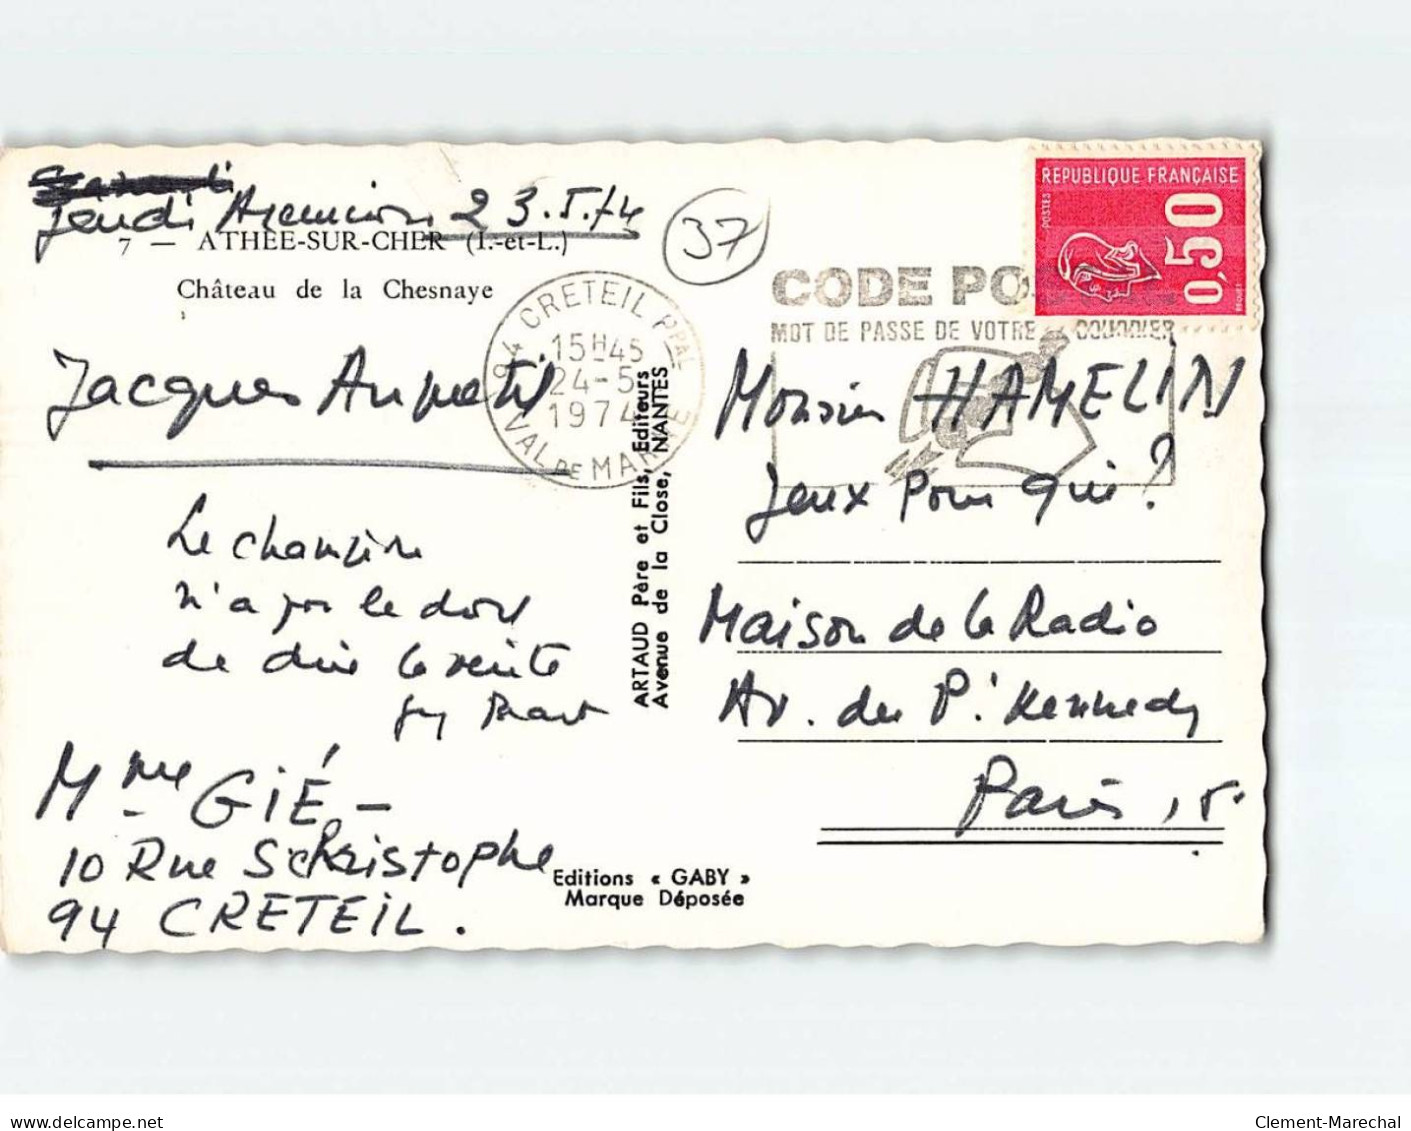 jeudi Ascension 23.5.74
7 — ATHÉE-SUR-CHER (I.-et-L.)
Château de la Chesnaye
37
94 CRETEIL PPAL
15H45
24-5
1974
VAL DE MARNE
CODE PO
MOT DE PASSE DE VOTRE COURRIER
REPUBLIQUE FRANÇAISE
POSTES
0,50
Jacques
Le
n'a pas le droit
de dire la vérité
Guy
Mme GIÉ -
10 Rue S Christophe
94 CRETEIL.
ARTAUD Père et Fils, Editeurs
Avenue de la Close, NANTES
Editions « GABY »
Marque Déposée
Monsieur HAMELIN
Jeux pour qui?
Maison de la Radio
Av. du P. Kennedy
Paris
delcampe.net
Clement-Marechal